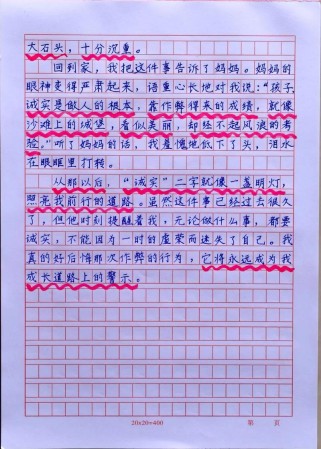 大石头，十分沉重。
回到家，我把这件事告诉了妈妈。妈妈的
眼神变得严肃起来，语重心长地对我说："孩子
诚实是做人的根本，靠作弊得来的成绩，就像
沙滩上的城堡，看似美丽，却经不起风浪的考
验。"听了妈妈的话，我羞愧地低下了头，泪水
在眼眶里打转。
从那以后，"诚实"二字就像一盏明灯，
照亮我前行的道路。虽然这件事已经过去很久
了，但他时刻提醒着我，无论做什么事，都要
诚实，不能因为一时的虚荣而迷失了自己。我
真的好后悔那次作弊的行为，它将永远成为我
成长道路上的警示。
20x20=400 第 页